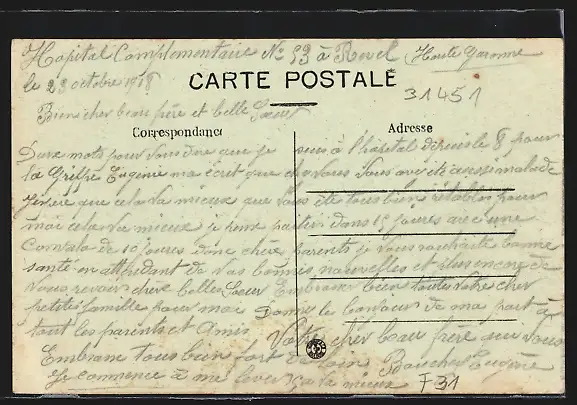 Hopital Complementaire No 53 à Revel (Haute Garonne
le 23 octobre 1918
CARTE POSTALE
31451
Bien cher beau frère et belle Soeur
Correspondance
Adresse
Deux mots pour vous dire que je suis à l'hôpital depuis le 8 pour
la Grippe Eugenie ma écrit que chez vous vous avez été aussi malade
que cela va mieux que vous ete tous bien rétablis pour
moi cela va mieux je pense partir dans 15 jours avec une
Convalo de 10 jours donc chers parents je vous souhaite bonne
santé en attendant de vos bonnes nouvelles et de
vous revoir chere belle Soeur Embrasse bien toute votre cher
petite famille pour moi Donne le bonjour de ma part à
tout les parents et Amis Votre cher beau frère qui vous
Embrasse tous bien fort de loin Eugène
Je commence à me lever ça va mieux F31